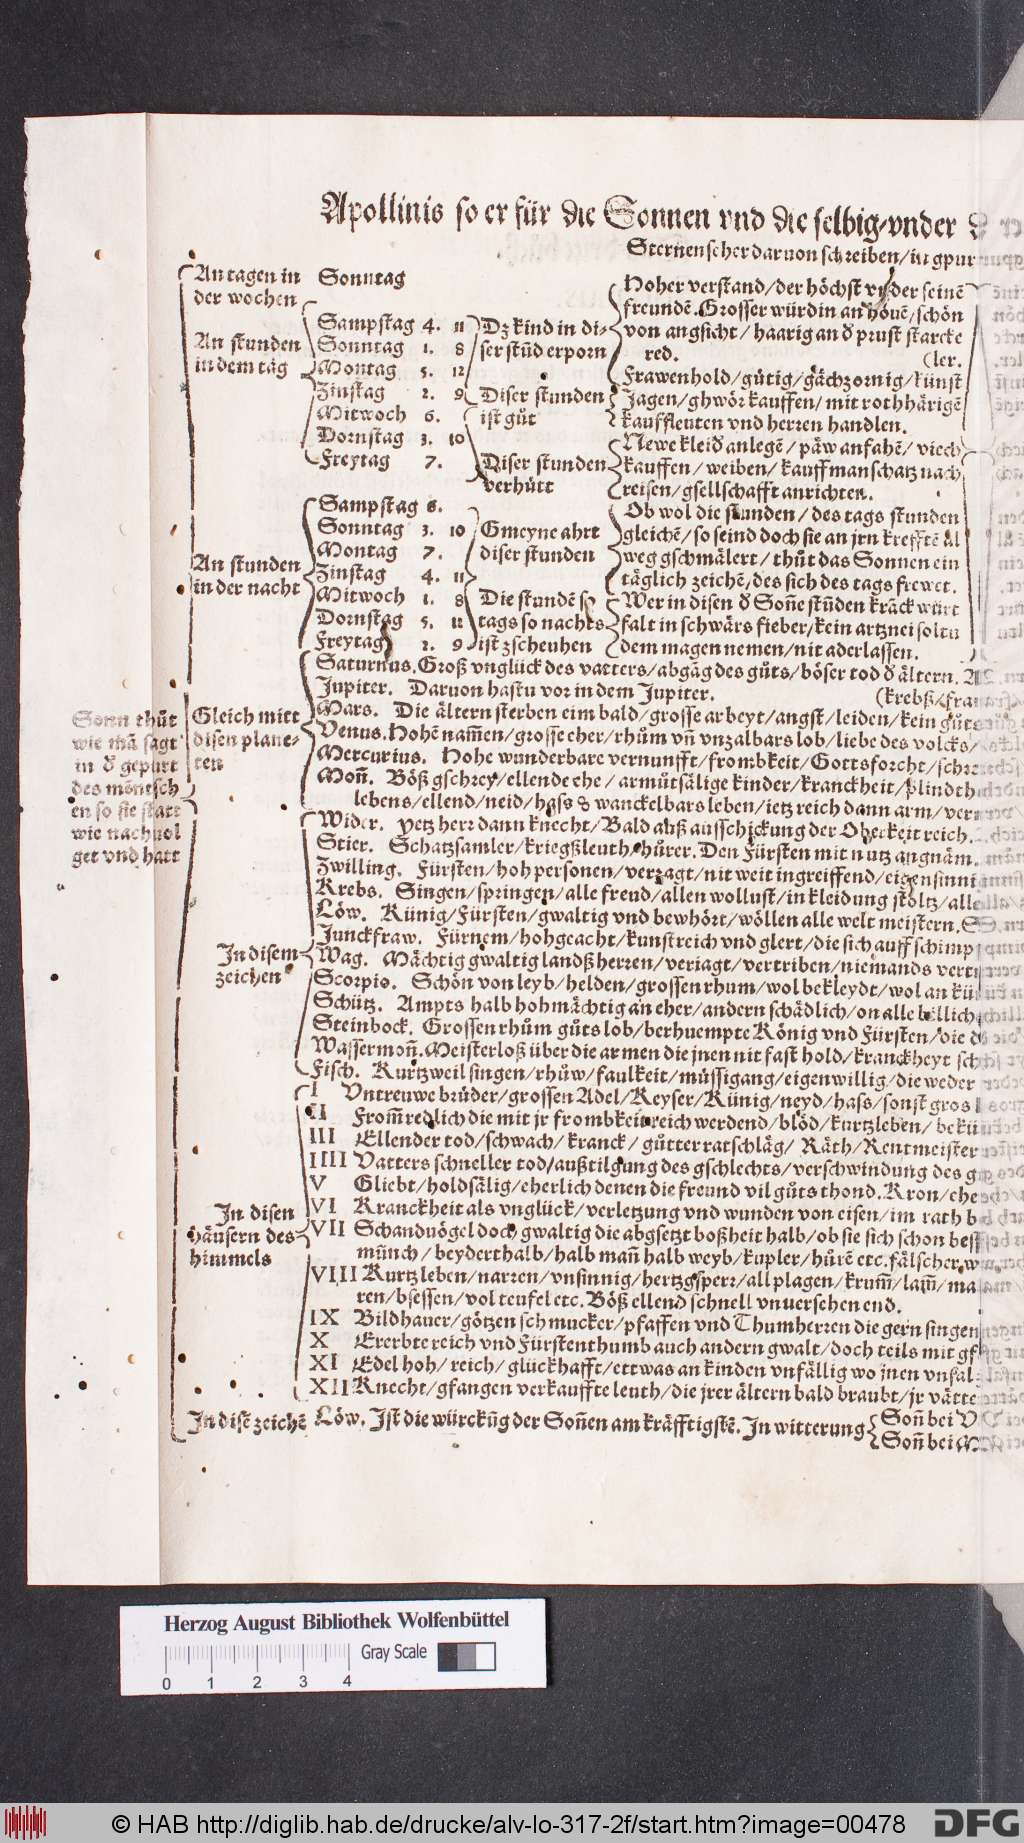 Apollinis so er für die Sonnen vnd die selbig/vnder
Sternenseher daruon schreiben/in gpur
Sonn thůt
wie mā sagt
in d̄ gepurt
des mentsch
en so sie statt
wie nachuol
get vnd hatt
An tagen in
der wochen
Sonntag
An stunden
in dem tag
Sampstag 4. 11
Sonntag 1. 8
Montag 5. 12
Zinstag 2. 9
Mitwoch 6.
Dornstag 3. 10
Freytag 7.
Dz kind in di-
ser stūd erporn
Hoher verstand/der höchst vnder seinē
freundē. Grosser würd in an höuē/schön
von angsicht/haarig an d̄ prust starcke
red. (ler.
Frawenhold/gůtig/gächzornig/künst
Diser stunden
ist gůt
Jagen/ghwör kauffen/mit rothhärigē
kauffleuten vnd herren handlen.
Diser stunden
verhütt
Newe kleid anlegē/päw anfahē/viech
kauffen/weiben/kauffmanschatz nach
reisen/gsellschafft anrichten.
An stunden
in der nacht
Sampstag 6.
Sonntag 3. 10
Montag 7.
Zinstag 4. 11
Mitwoch 1. 8
Dornstag 5. 12
Freytag 2. 9
Gmeyne ahrt
diser stunden
Ob wol die stunden/des tags stunden
gleichē/so seind doch sie an jrn krefftē al
weg gschmälert/thůt das Sonnen ein
täglich zeichē/des sich des tags frewet.
Die stundē so
tags so nachts
ist zscheuhen
Wer in disen d̄ Soñe stūden kräck würt
falt in schwärs fieber/kein artznei soltu
dem magen nemen/nit aderlassen.
Gleich mitt
disen plane-
ten
Saturnus. Groß vnglück des vatters/abgāg des gůts/böser tod d̄ ältern.
Jupiter. Daruon hastu vor in dem Jupiter. (krebß/
Mars. Die ältern sterben eim bald/grosse arbeyt/angst/leiden/kein gůts
Venus. Hohē nam̄en/grosse eher/rhům vñ vnzalbars lob/liebe des volcks/
Mercurius. Hohe wunderbare vernunfft/frombkeit/Gottsforcht/
Moñ. Böß gschrey/ellende ehe/armůtsälige kinder/kranckheit/plindth
lebens/ellend/neid/hass & wanckelbars leben/ietz reich dann arm/
In disem
zeichen
Wider. yetz herr dann knecht/Bald auß ausschickung der Oberkeit reich.
Stier. Schatzsamler/kriegßleuth/hůrer. Den Fürsten mit nutz angnäm.
Zwilling. Fürsten/hoh personen/verzagt/nit weit ingreiffend/eigensinni
Krebs. Singen/springen/alle freud/allen wollust/in kleidung stoltz/
Löw. Künig/Fürsten/gwaltig vnd bewhört/wöllen alle welt meistern.
Junckfraw. Fürnem/hohgeacht/kunstreich vnd glert/die sich auff schimp
Wag. Mächtig gwaltig landßherren/veriagt/vertriben/niemands
Scorpio. Schön von leyb/helden/grossen rhum/wol bekleydt/wol an
Schütz. Ampts halb hohmächtig an eher/andern schädlich/on alle billich
Steinbock. Grossen rhům gůts lob/berhuempte König vnd Fürsten/die
Wassermoñ. Meisterloß über die armen die jnen nit fast hold/kranckheyt
Fisch. Kurtzweil singen/rhůw/faulkeit/müssigang/eigenwillig/die weder
In disen
häusern des
himmels
I Vntreuwe brüder/grossen Adel/Keyser/Künig/neyd/hass/sonst gros
II From̄ redlich die mit jr frombkeit reich werdend/blöd/kurtzleben/
III Ellender tod/schwach/kranck/gůtter ratschläg/Räth/Rentmeister
IIII Vatters schneller tod/außtilgung des gschlechts/verschwindung des
V Gliebt/holdsälig/eherlich denen die freund vil gůts thond. Kron/
VI Kranckheit als vnglück/verletzung vnd wunden von eisen/im rath
VII Schandvögel doch gwaltig die abgsetzt boßheit halb/ob sie sich schon
münch/beyderthalb/halb mañ halb weyb/kupler/hůrē etc. fälscher
VIII Kurtzleben/narren/vnsinnig/hertzgsperr/all plagen/krum̄/lam̄/
ren/bsessen/vol teufel etc. Böß ellend schnell vnuersehen end.
IX Bildhauer/götzen schmucker/pfaffen vnd Thumherren die gern singen
X Ererbte reich vnd Fürstenthumb auch andern gwalt/doch teils mit
XI Edel hoh/reich/glückhafft/ettwas an kinden vnfällig wo jnen
XII Knecht/gfangen verkauffte leuth/die jrer ältern bald braubt/jr
In disē zeichē Löw. Ist die würckūg der Soñen am kräfftigstē. In witterung
Soñ bei
Soñ bei
Herzog August Bibliothek Wolfenbüttel
Gray Scale
0 1 2 3 4
© HAB http://diglib.hab.de/drucke/alv-lo-317-2f/start.htm?image=00478
DFG